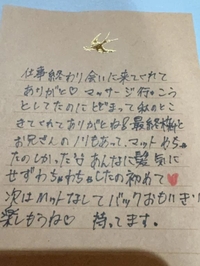 仕事終わり会いに来てくれて
ありがと♡ マッサージ行こう
としてたのにとどまって私のとこ
きてくれてありがとね!最終様と
お兄さんのノリもあって、マットめちゃ
たのしかったなあんなに髪気に
せずわちゃわちゃしたの初めて❤
次はMットなしでバックおもいきり
楽しもうね♡ 待ってます。